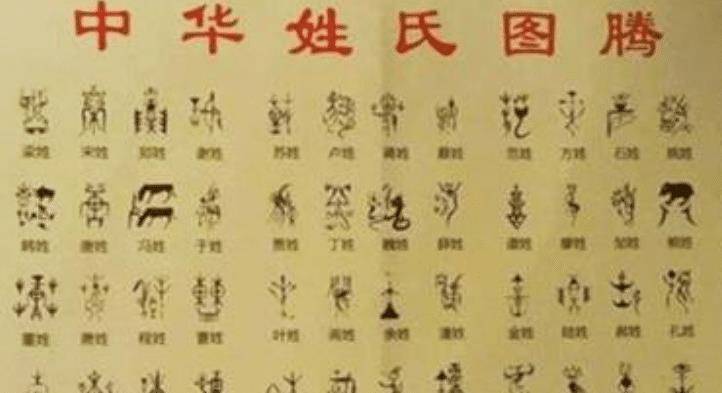 中华姓氏图腾
梁姓 宋姓 郑姓 谢姓 苏姓 卢姓 蒋姓 蔡姓 范姓 方姓 石姓 姚姓
韩姓 唐姓 冯姓 于姓 姓 丁姓 魏姓 薛姓 谭姓 廖姓 邹姓 姓
董姓 姓 程姓 曹姓 叶姓 阎姓 余姓 潘姓 金姓 陆姓 郝姓 孔姓